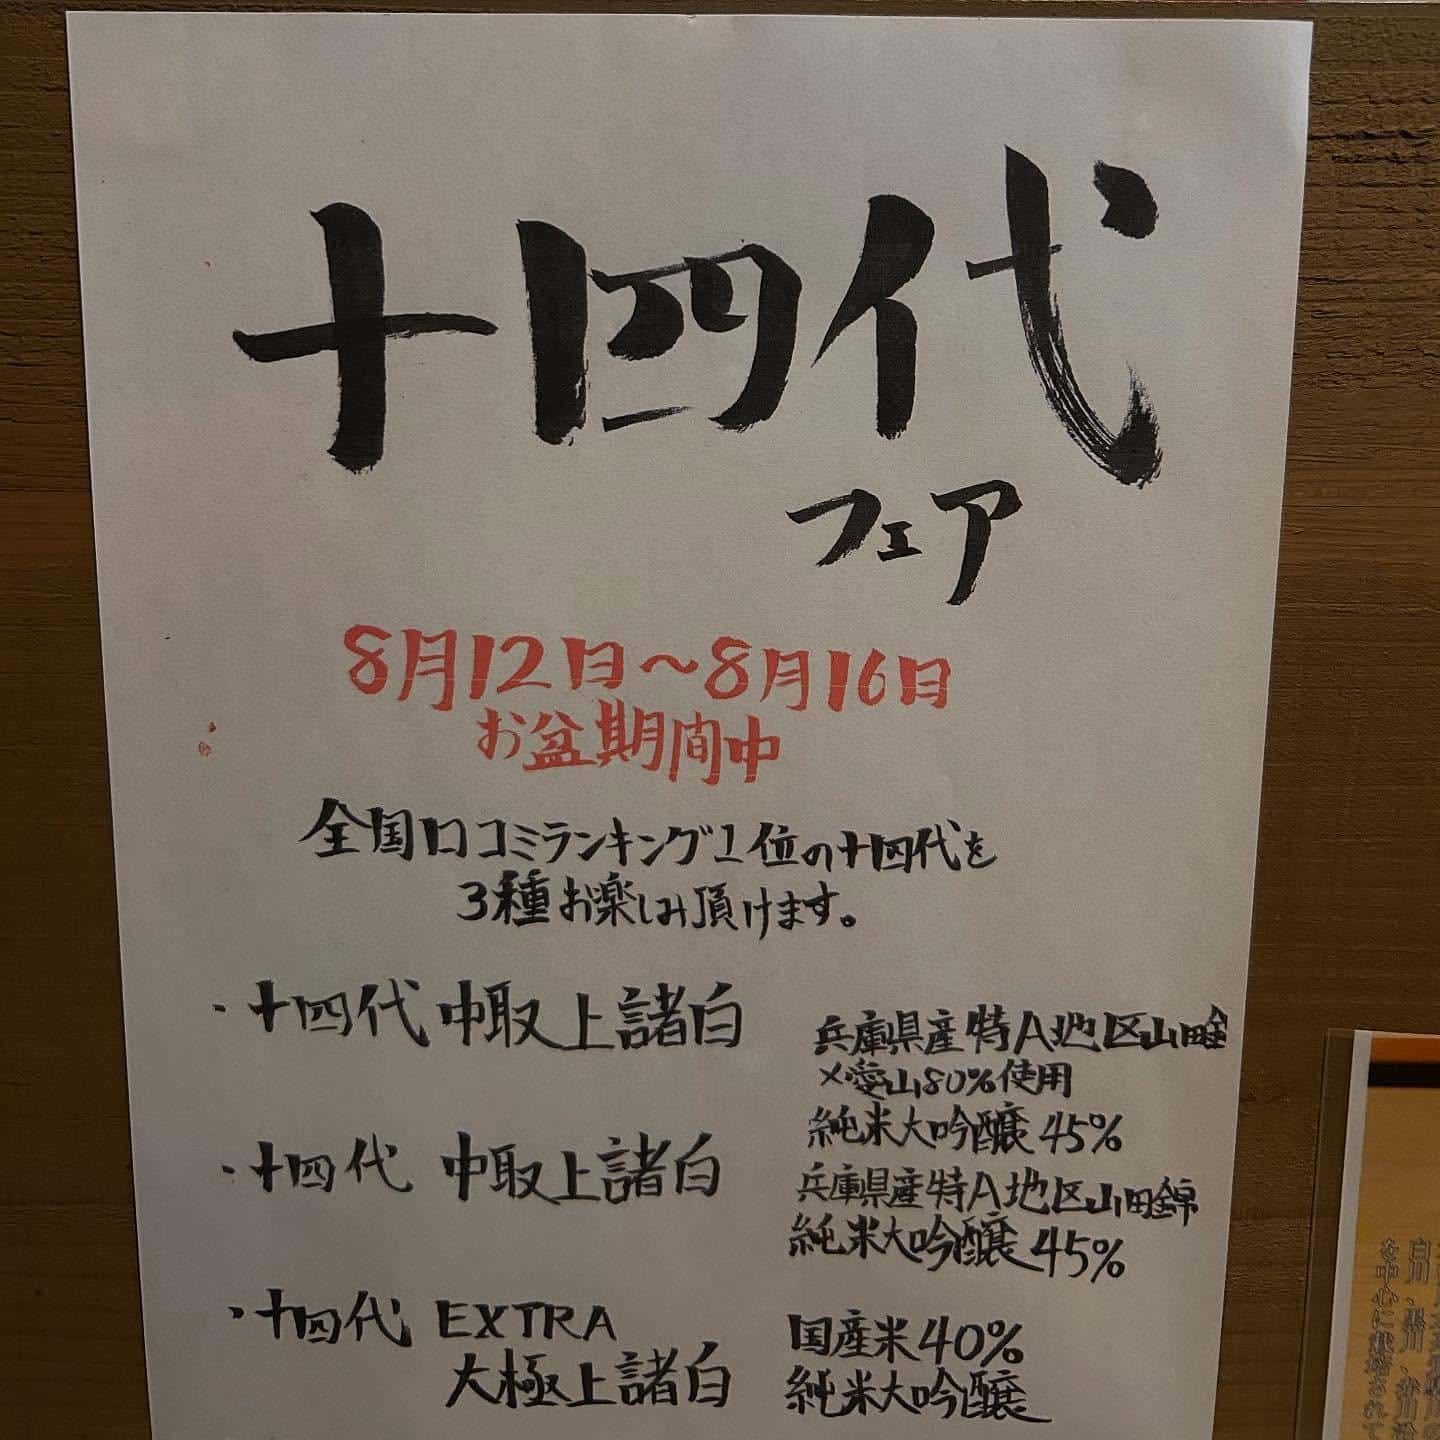 十四代
フェア
8月12日～8月16日
お盆期間中
全国口コミランキング1位の十四代を
3種お楽しみ頂けます。
・十四代 中取上諸白
兵庫県産特A地区山田金
×愛山80%使用
純米大吟醸45%
・十四代 中取上諸白
兵庫県産特A地区山田錦
純米大吟醸45%
・十四代 EXTRA
大極上諸白
国産米40%
純米大吟醸
を中心に栽培されて